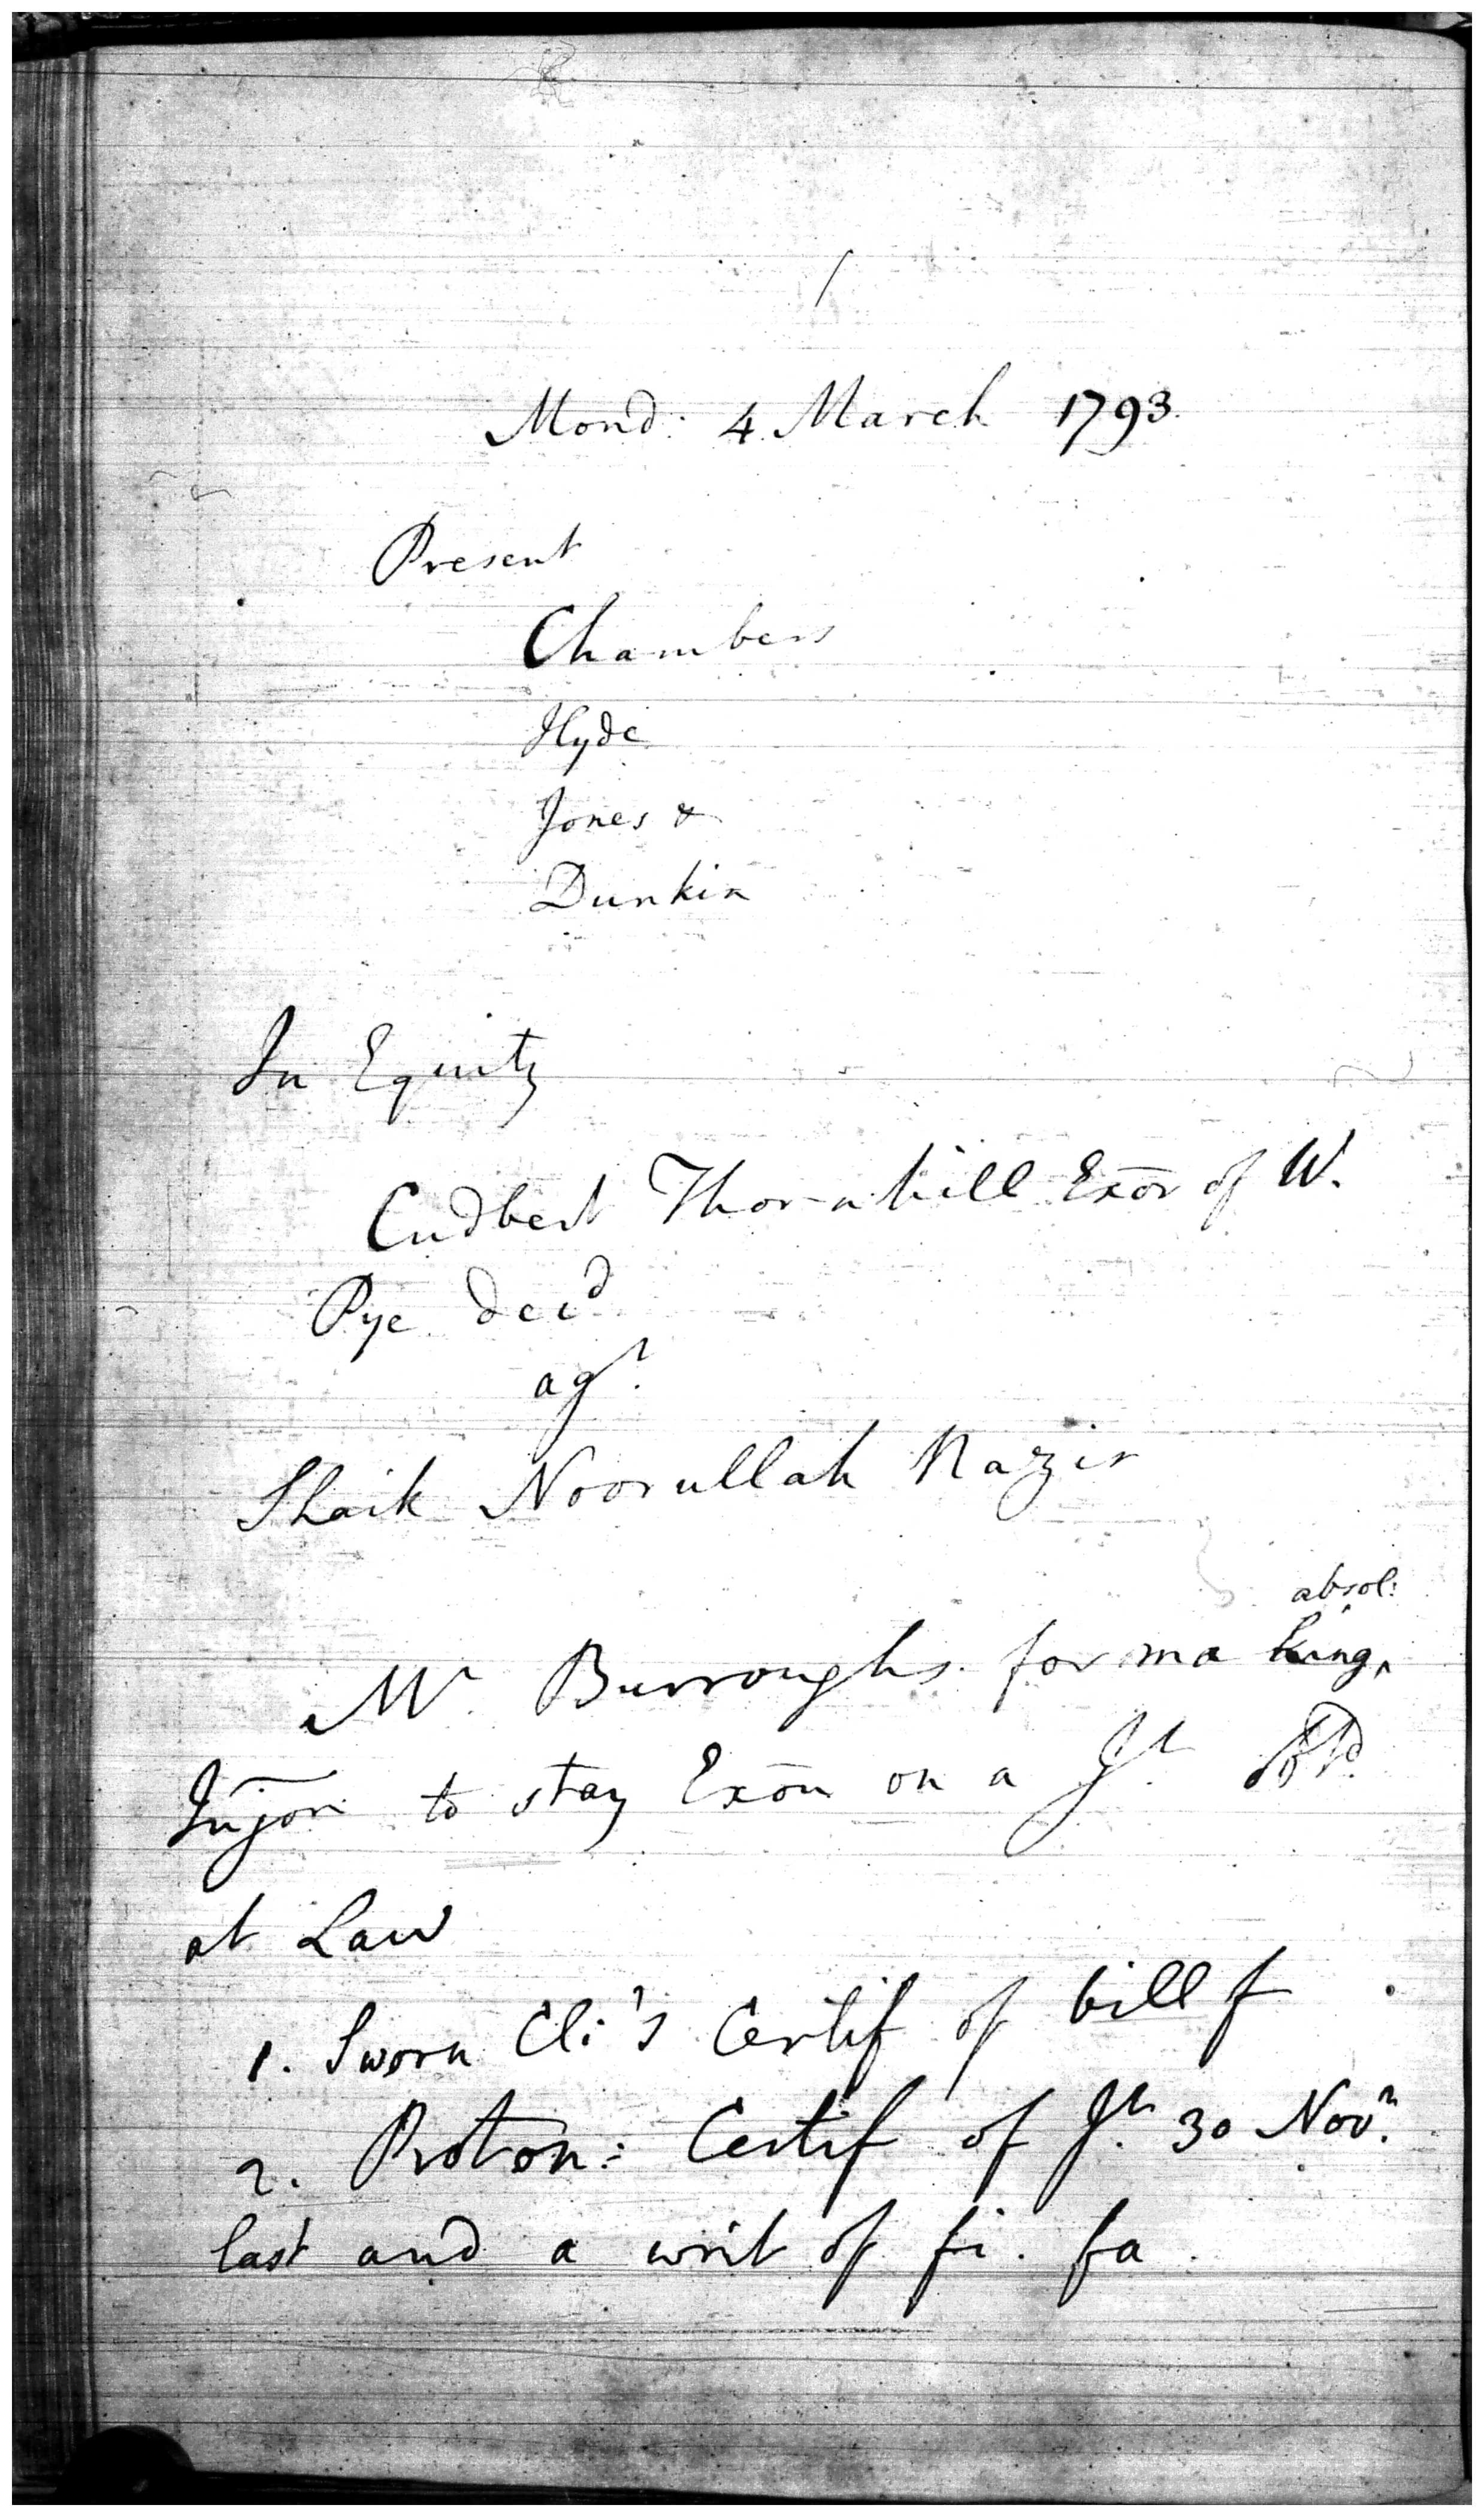 Mond: 4 March 1793.
Present
Chambers
Hyde
Jones &
Dunkin
In Equity
Cudbert Thornhill Exōr of W.
Pye decd
agt.
Shaik Noorullah Nazir
absol:
Mr Burroughs. for making
Injon to stay Exōn on a Jt.
at Law
1. Sworn Cl:'s Certif of bill f
2. Proton: Certif of Jt. 30 Novr.
last and a writ of fi. fa.